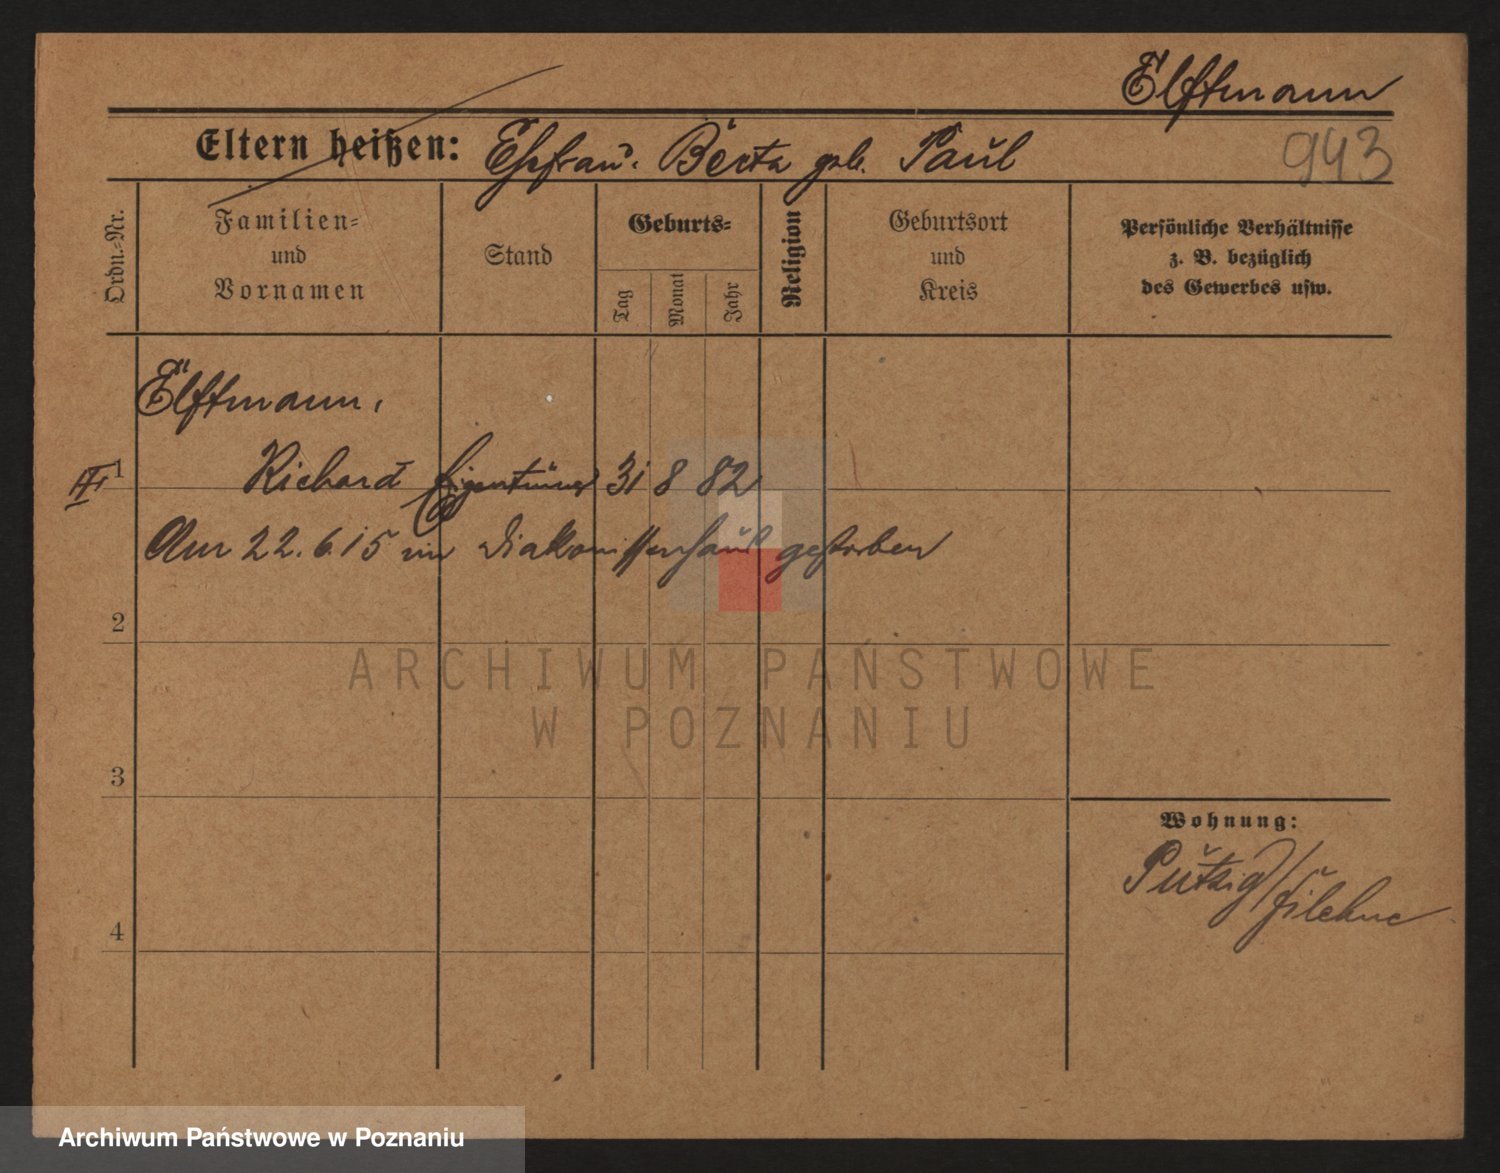 Elftmann
943
Eltern heißen: Ehefrau: Berta geb. Paul
Ordn.=Nr.
Familien=
und
Vornamen
Stand
Geburts=
Tag
Monat
Jahr
Religion
Geburtsort
und
Kreis
Persönliche Verhältnisse
z. B. bezüglich
des Gewerbes usw.
Elftmann,
1 Richard Eigentümer 31 8 82
Am 22.6.15 im Diakonissenhaus gestorben
2
ARCHIWUM PAŃSTWOWE
W POZNANIU
3
Wohnung:
Putzig/Filehne
4
Archiwum Państwowe w Poznaniu